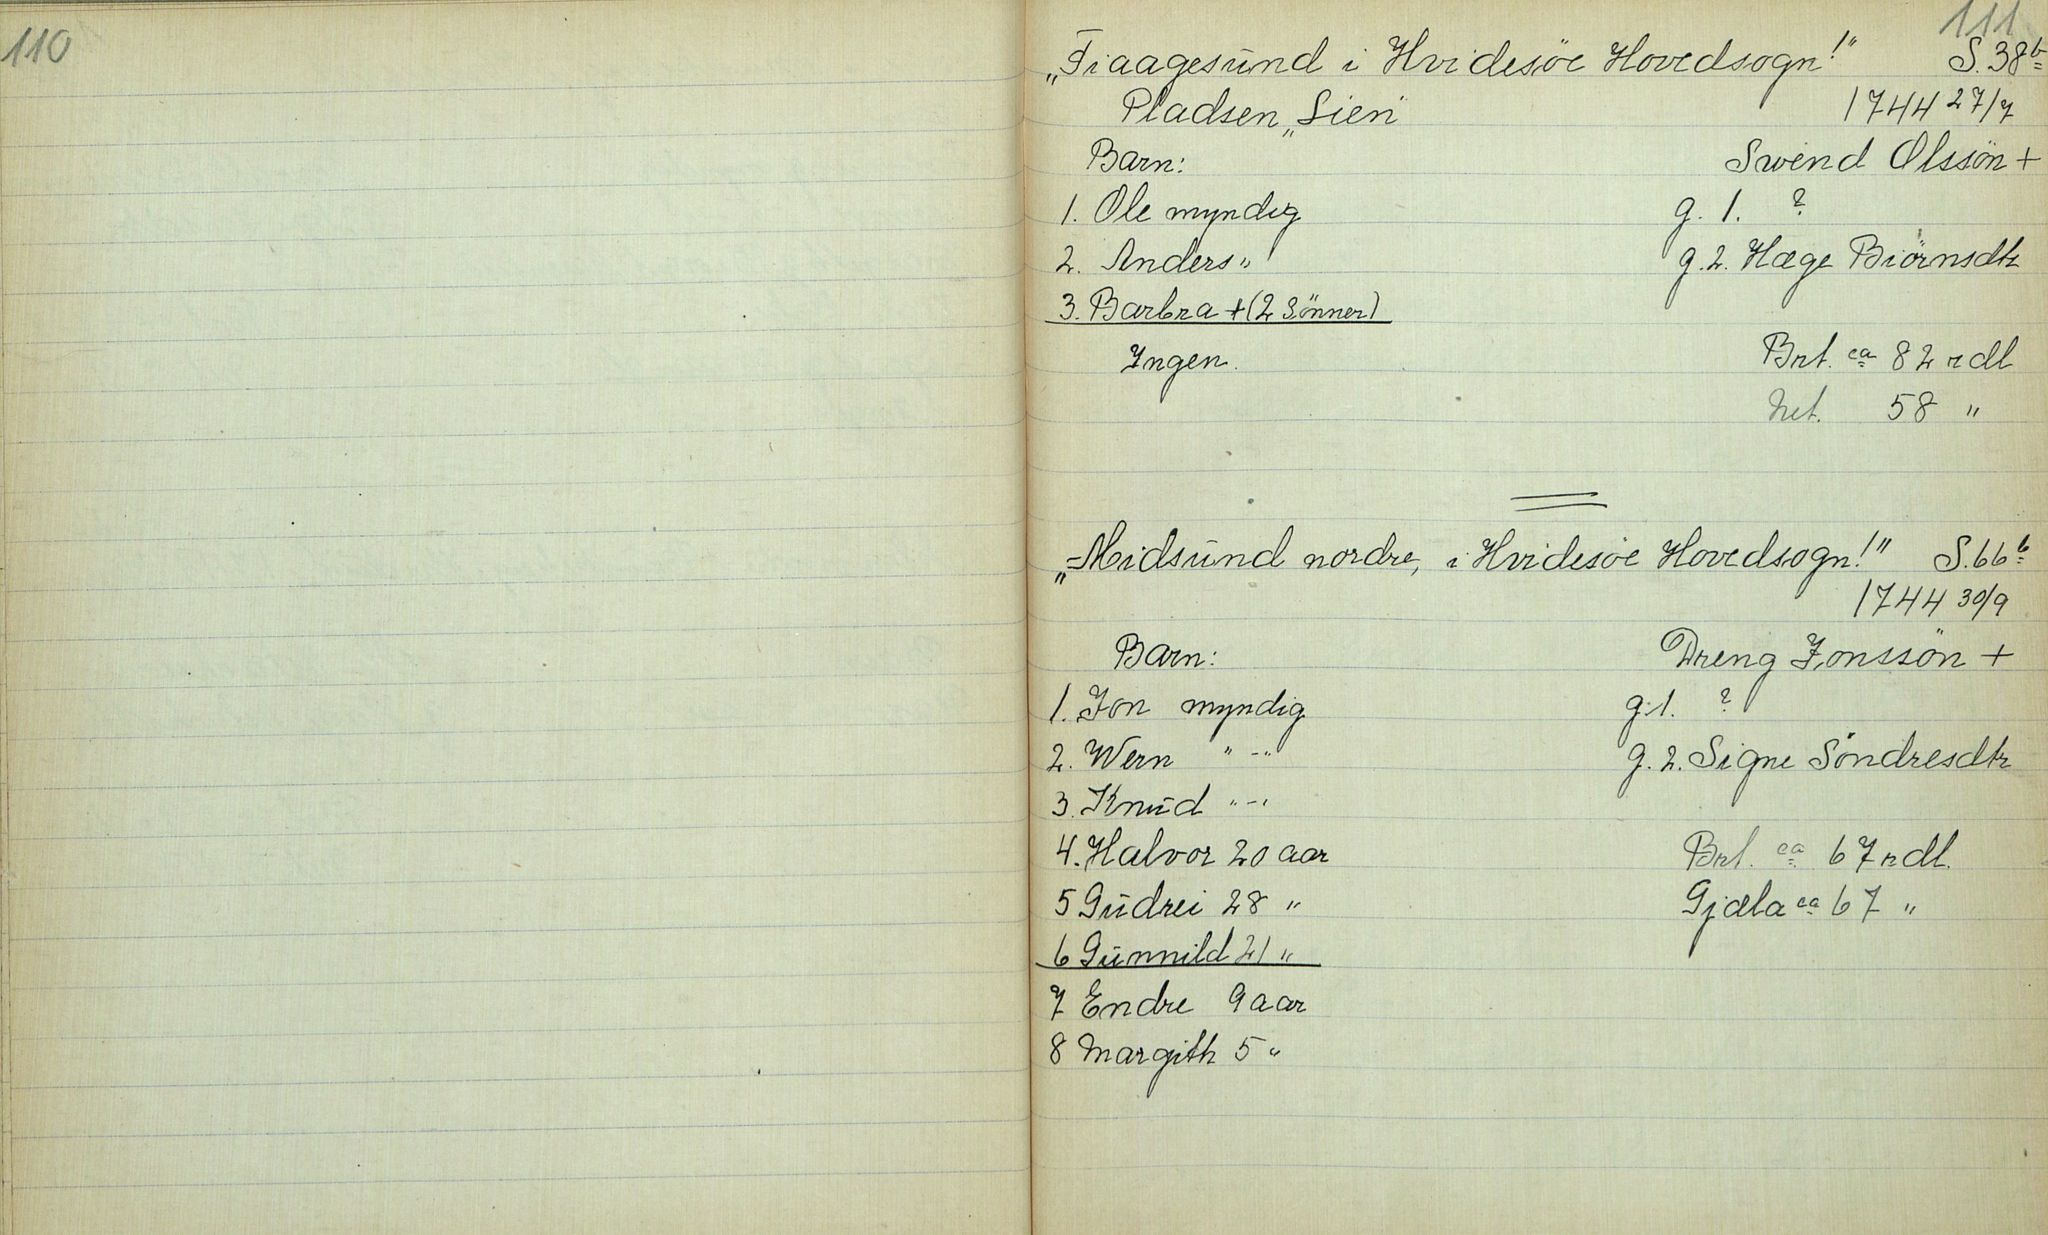 110
111
„Fiaagesund i Hvidesöe Hovedsogn!" S. 38b
Pladsen „Lien" 1744 27/7
Barn: Swend Olssön +
1. Ole myndig g. 1. ?
2. Anders " g. 2. Hæge Biörnsdtr
3. Barbra + (2 Sönner)
Ingen. Brt. ca 82 rdl
Net. 58 "
„Midsund nordre, i Hvidesöe Hovedsogn!" S. 66b
1744 30/9
Barn: Dreng Jonssön +
1. Jon myndig g. 1. ?
2. Wern " - " g. 2. Signe Söndresdtr
3. Knud " - "
4. Halvor 20 aar Brt. ca 67 rdl.
5 Gudrei 28 " Gjæla ca 67 "
6 Gunnild 21 "
7 Endre 9 aar
8 Margith 5 "